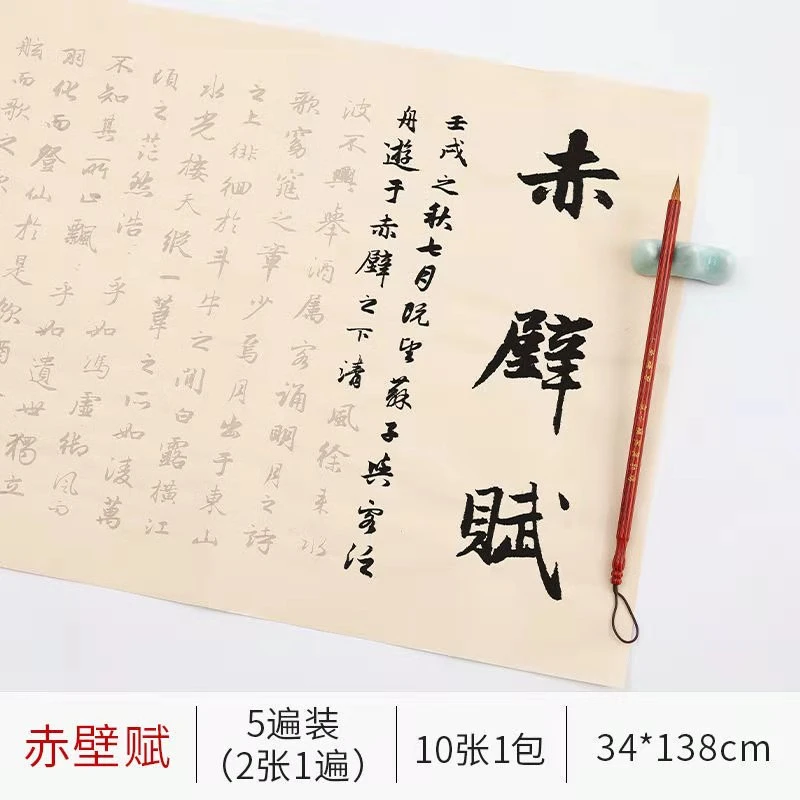 赤壁賦
壬戌之秋七月既望蘇子與客泛
舟遊于赤壁之下清風徐来水
波不興舉酒属客誦明月之詩
歌窈窕之章少焉月出于東山
之上徘徊於斗牛之間白露横江
水光接天縱一葦之所如凌萬
頃之茫然浩々乎如馮虚御風而
不知其所止飄々乎如遺世獨立
羽化而登仙於是飲酒
舷而歌之
赤壁赋
5遍装
（2张1遍）
10张1包
34*138cm